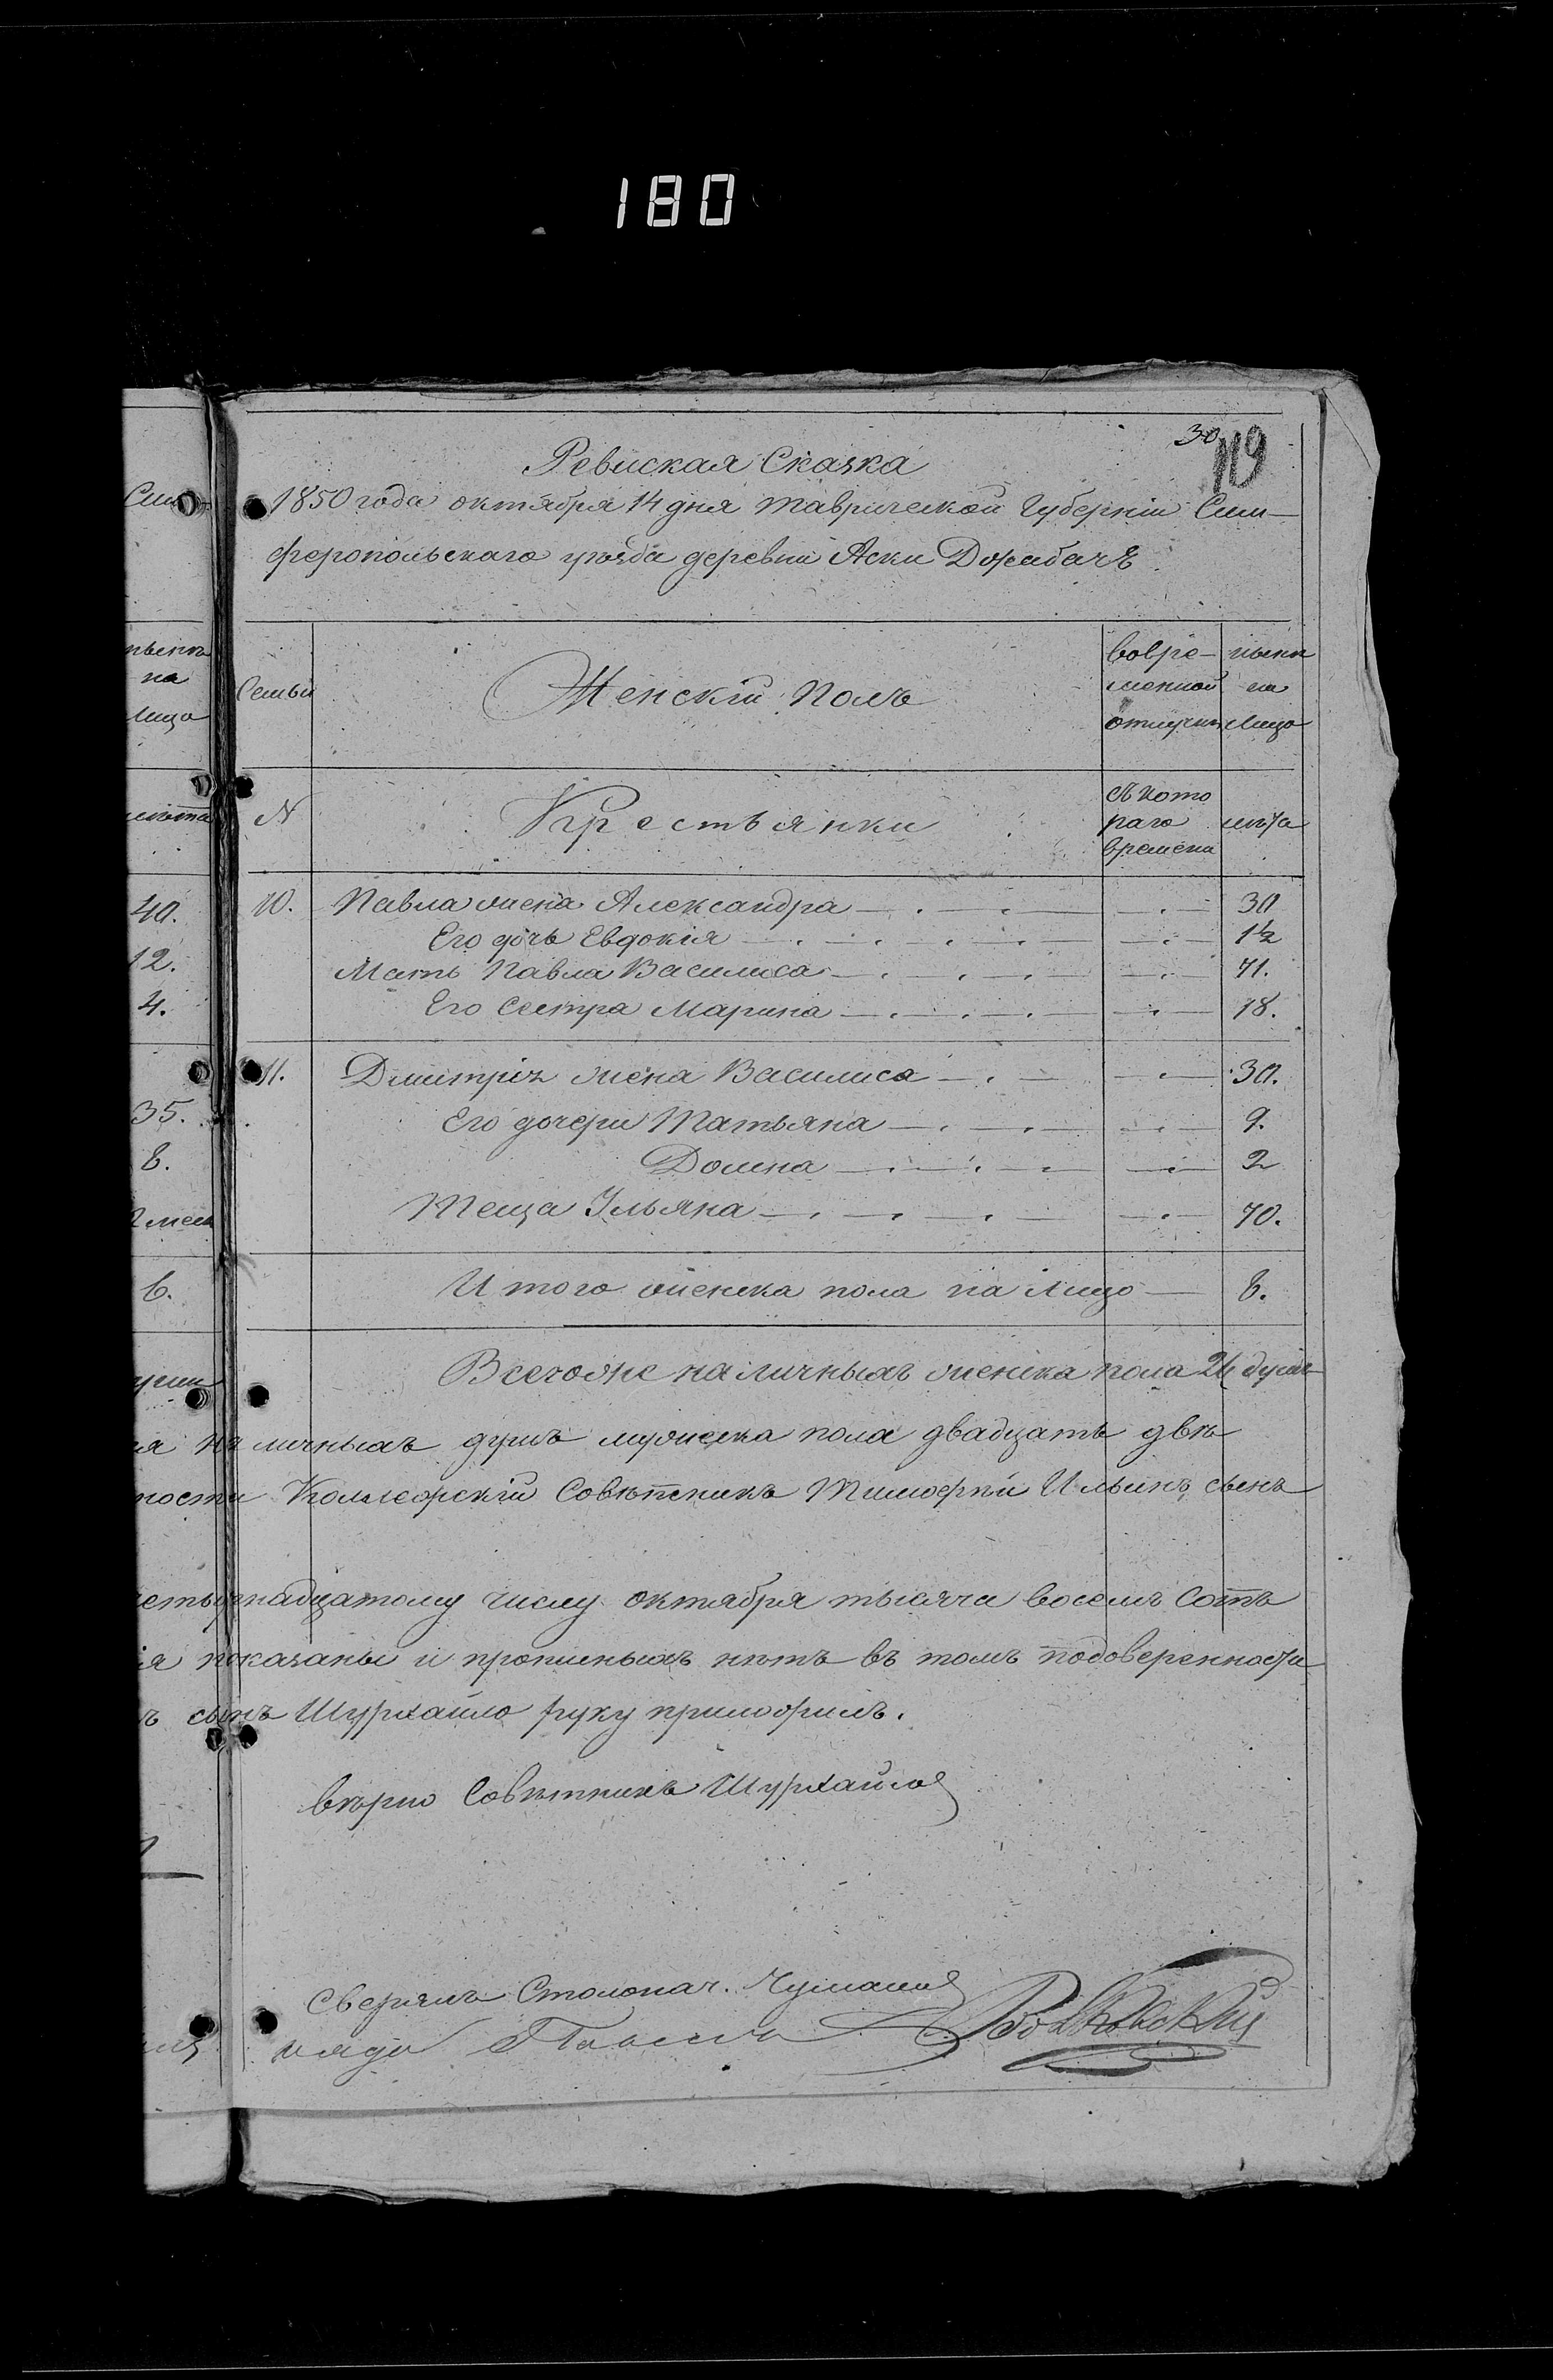 180
30
119
Ревиская Сказка
1850 года октября 14 дня Таврической Губерніи Сим-
феропольскаго уѣзда деревни Аски Джабачь
Сим
Семьи
Женскій Полъ
вовре-
менной
отлучки
нынѣ
на
лицо
на
лицо
лѣта
N
Крестьянки
съ кото
раго
времени
лѣта
40.
12.
4.
10. Павла жена Александра 30
Его дочь Евдокія 1½
Мать Павла Василиса 71.
Его Сестра Марина 18.
35.
8.
6.
11. Дмитрія жена Василиса 30.
Его дочери Татьяна 9.
Домна 2
Теща Ульяна 70.
Итого женска пола на лицо 8.
Всегоже наличныхъ женска пола 24 душъ
ія наличныхъ душъ мужеска пола двадцать двѣ
ности Коллежскій Совѣтникъ Тимофѣй Ильинъ сынъ
етырнадцатому числу октября тысяча восемь сотъ
ія показаны и прописныхъ нѣтъ въ томъ подоверенности
ъ сынъ Шурхайло руку приложилъ.
вѣрно Совѣтникъ Шурхайло
Сверялъ Столонач.